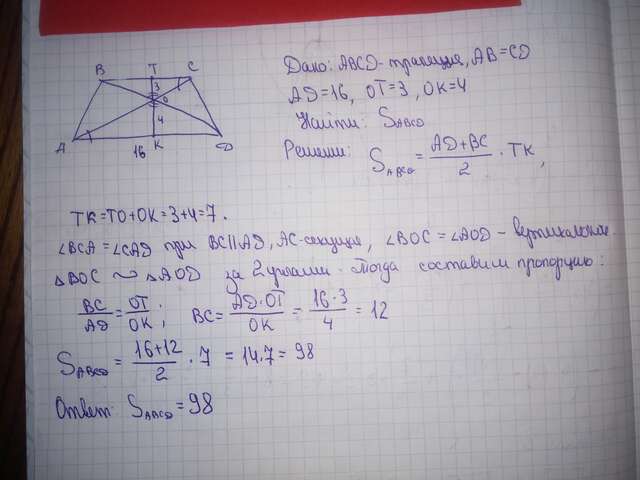 B T C
3
O
4
A 16 K D
Дано: ABCD - трапеция, AB = CD
AD = 16, OT = 3, OK = 4
Найти: S_ABCD
Решение: S_ABCD = (AD + BC)/2 · TK,
TK = TO + OK = 3 + 4 = 7.
∠BCA = ∠CAD при BC || AD, AC - секущая, ∠BOC = ∠AOD - вертикальные
△BOC ~ △AOD за 2 углами. Тогда составим пропорцию:
BC/AD = OT/OK; BC = AD·OT/OK = 16·3/4 = 12
S_ABCD = (16+12)/2 · 7 = 14·7 = 98
Ответ: S_ABCD = 98